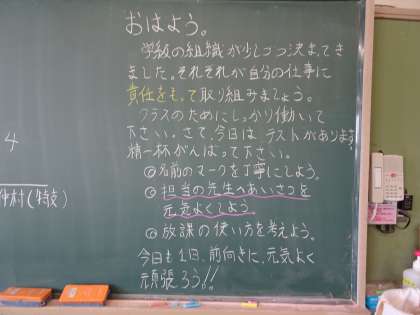 おはよう。
学級の組織が少しづつ決まってき
ました。それぞれが自分の仕事に
責任をもって取り組みましょう。
クラスのためにしっかり働いて
下さい。さて、今日はテストがあります
精一杯がんばって下さい。
◎名前のマークを丁寧にしよう。
◎担当の先生へあいさつを
元気よくしよう
◎放課の使い方を考えよう。
今日も1日、前向きに、元気よく
頑張ろう!!
4
仲村(特支)